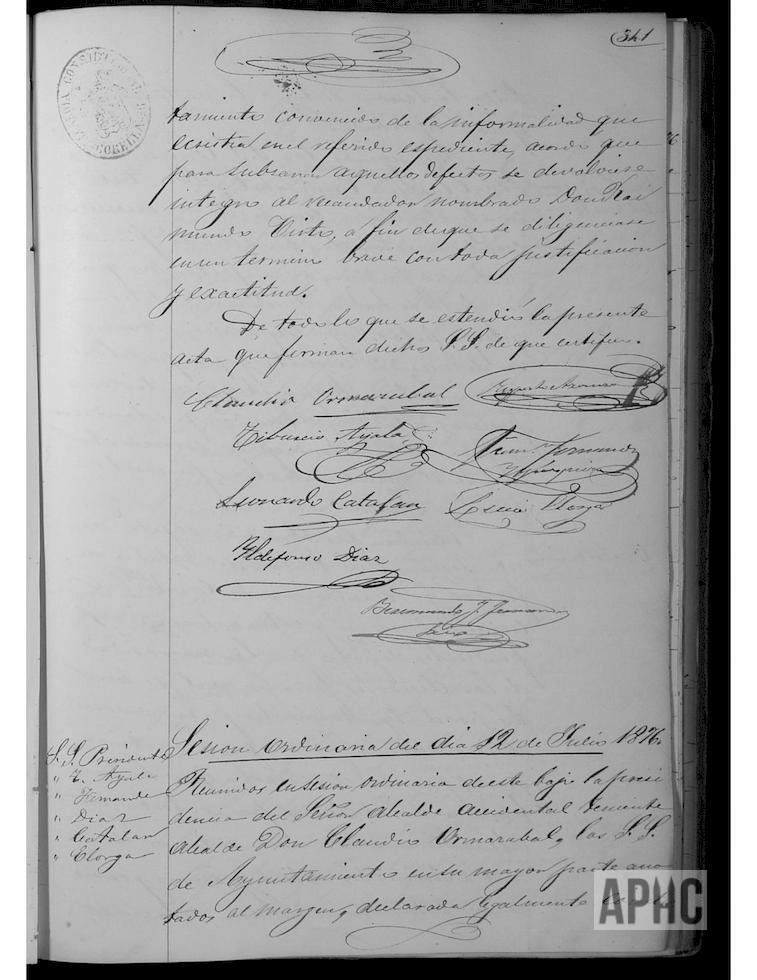 341
ALCALDIA CONSTITUCIONAL DE CORELLA
tamiento convencido de la informalidad que
ecsistia en el referido espediente, acordó que
para subsanar aquellos defectos se devolviese
integro al recaudador nombrado Don Rai
mundo Virto, a fin de que se diligenciase
en un termino breve con toda justificacion
y exactitud.
De todo lo que se estendió la presente
acta que firman dichos S.S. de que certifico.
Claudio Ormazabal
Tiburcio Ayala
Juan Fernandez
Leonardo Catalan
Elorga
Yldefonso Diaz
Sesion ordinaria del dia 12 de Julio 1876.
S.S. Presidente
" T. Ayala
" Fernande
" Diaz
" Catalan
" Elorga
Reunidos en sesion ordinaria de este bajo la presi
dencia del Señor Alcalde accidental teniente
Alcalde Don Claudio Ormazabal, los S.S.
de Ayuntamiento en su mayor parte ano
tados al margen, declarada legalmente
APHC